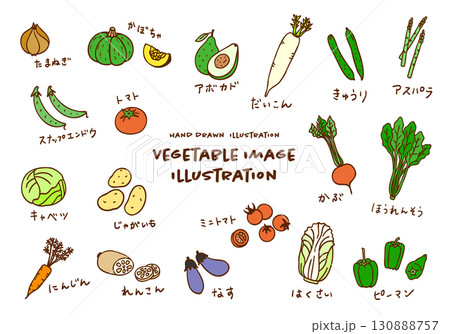 たまねぎ
かぼちゃ
アボカド
だいこん
きゅうり
アスパラ
スナップエンドウ
トマト
HAND DRAWN ILLUSTRATION
VEGETABLE IMAGE
ILLUSTRATION
かぶ
ほうれんそう
キャベツ
じゃがいも
ミニトマト
にんじん
れんこん
なす
はくさい
ピーマン
PIXTA
pixta.jp - 130888757